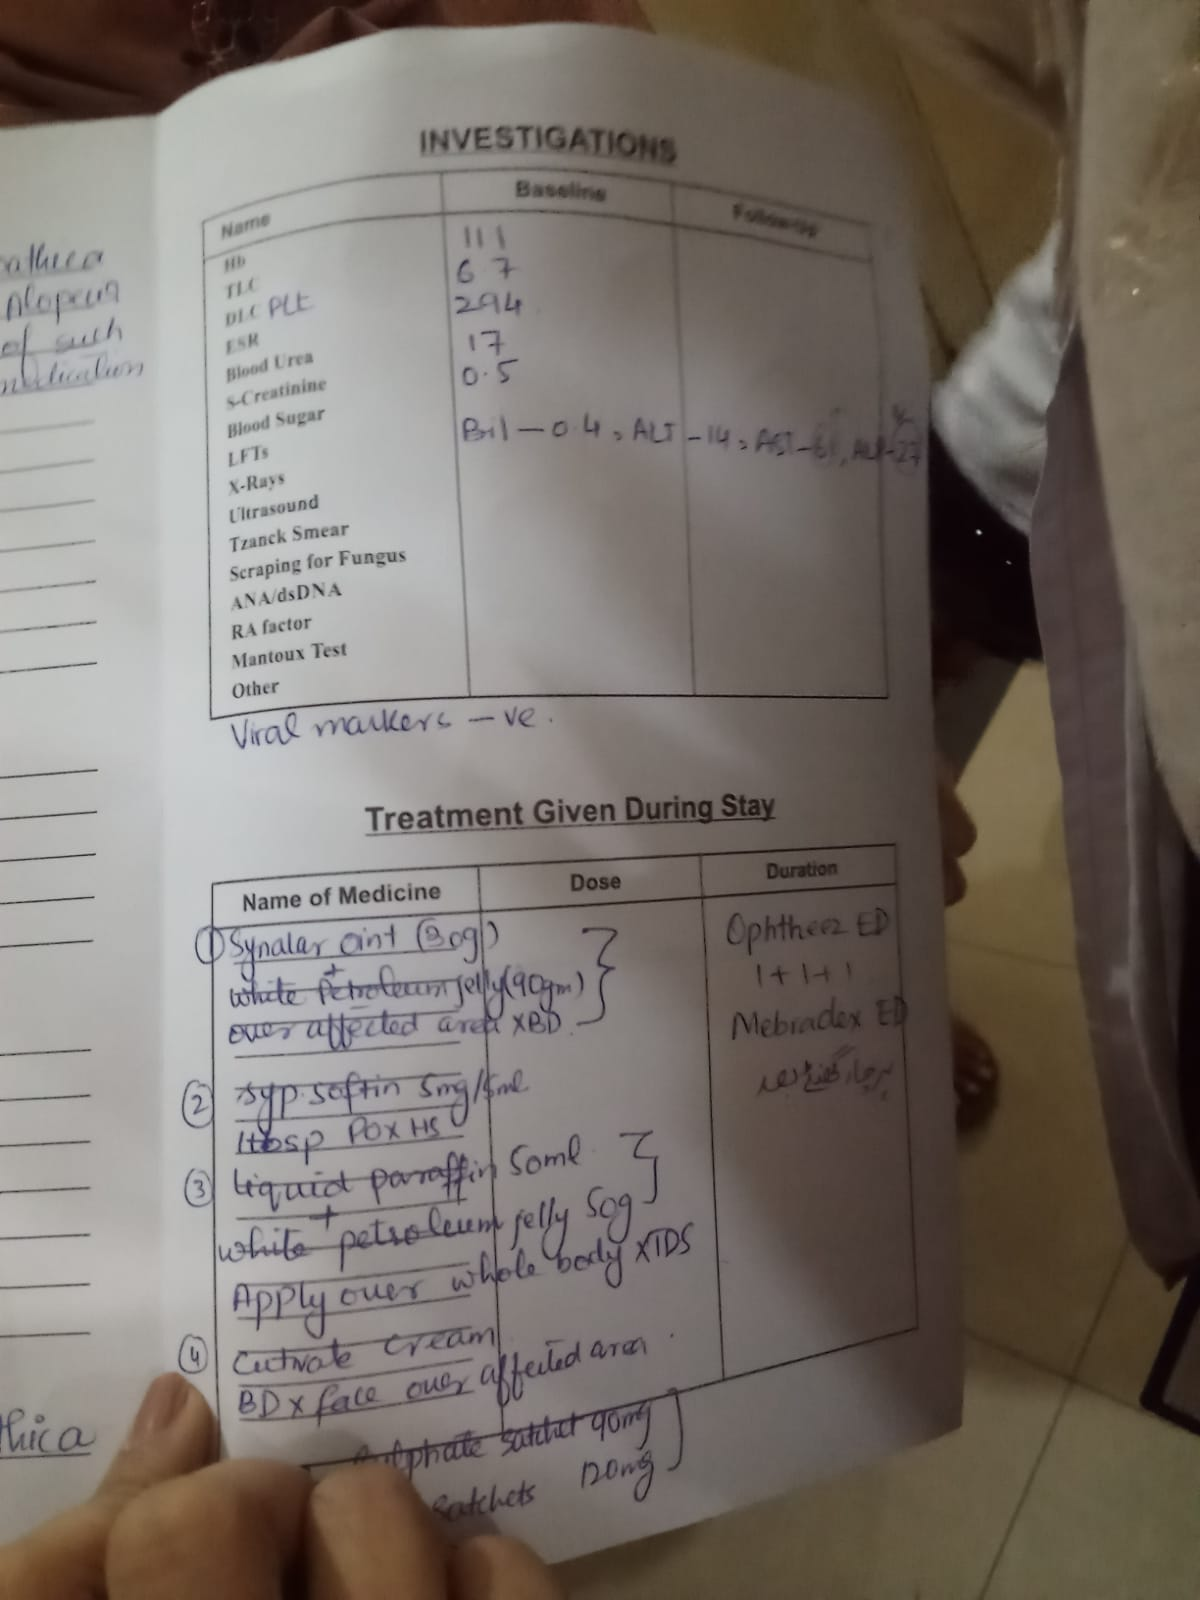 athica
Alopecia
of such
medication
thica
INVESTIGATIONS
Name Baseline Followup
Hb 111
TLC 6 7
DLC PLT 294
ESR
Blood Urea 17
S-Creatinine 0.5
Blood Sugar
LFTs Bil - 0.4, ALT - 14, AST -
X-Rays
Ultrasound
Tzanck Smear
Scraping for Fungus
ANA/dsDNA
RA factor
Mantoux Test
Other
Viral markers - ve.
Treatment Given During Stay
Name of Medicine Dose Duration
① Synalar oint (30g)
+
White Petroleum jelly (90gm)
over affected area X BD
② syp. softin 5mg/5ml
1tbsp PO X HS
③ Liquid paraffin 50ml
+
white petroleum jelly 50g
Apply over whole body X TDS
④ Cutivate cream
BD X face over affected area.
Sulphate satchet 90mg
satchets 120mg
Ophtheez ED
1 + 1 + 1
Mebradex ED